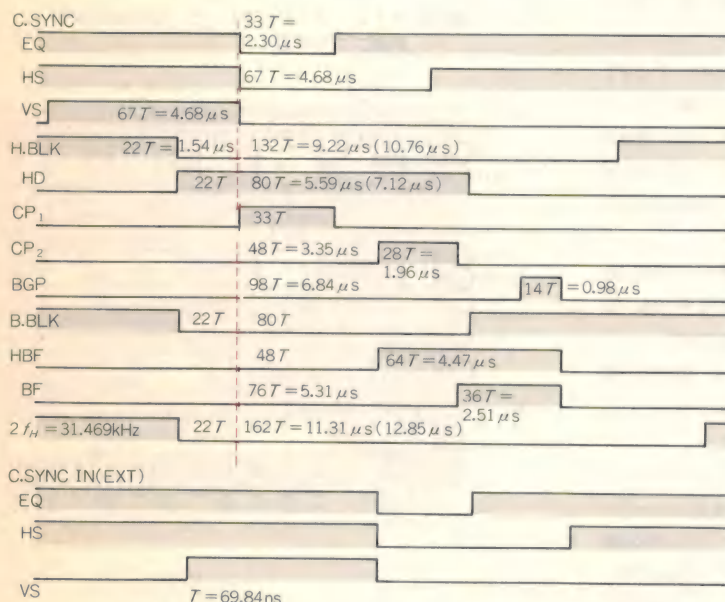 C.SYNC 33 T =
EQ 2.30 μs
HS 67 T = 4.68 μs
VS 67 T = 4.68 μs
H.BLK 22 T = 1.54 μs 132 T = 9.22 μs (10.76 μs)
HD 22 T 80 T = 5.59 μs (7.12 μs)
CP₁ 33 T
CP₂ 48 T = 3.35 μs 28 T =
1.96 μs
BGP 98 T = 6.84 μs 14 T = 0.98 μs
B.BLK 22 T 80 T
HBF 48 T 64 T = 4.47 μs
BF 76 T = 5.31 μs 36 T =
2.51 μs
2 f_H = 31.469kHz 22 T 162 T = 11.31 μs (12.85 μs)
C.SYNC IN(EXT)
EQ
HS
VS
T = 69.84ns